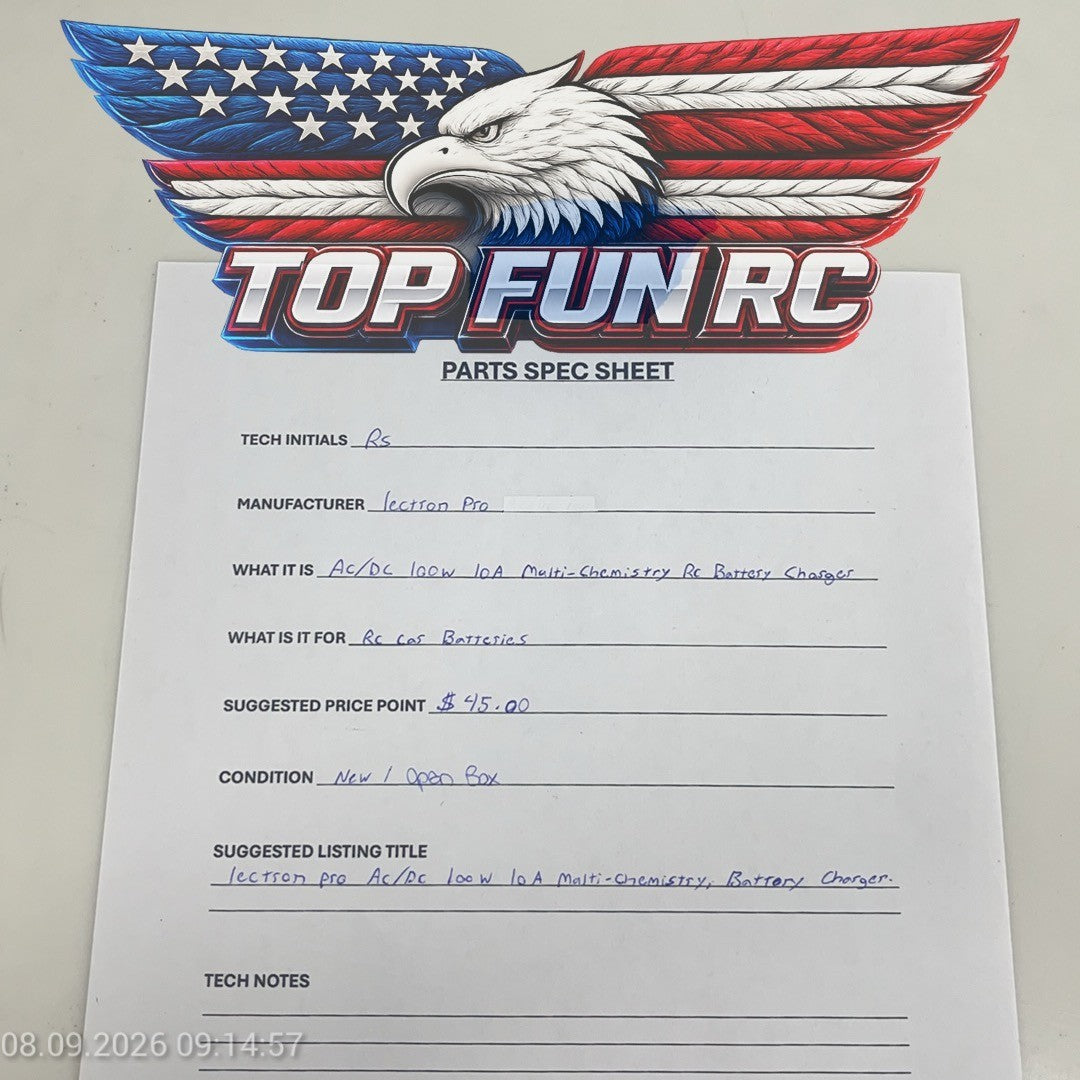 TOP FUN RC
PARTS SPEC SHEET
TECH INITIALS Rs
MANUFACTURER lectron Pro
WHAT IT IS Ac/DC 100w 10A Multi-Chemistry Rc Battery Charger
WHAT IS IT FOR Rc car Batteries
SUGGESTED PRICE POINT $ 45.00
CONDITION New / Open Box
SUGGESTED LISTING TITLE
lectron pro Ac/Dc 100w 10A Multi-Chemistry, Battery Charger.
TECH NOTES
08.09.2026 09:14:57